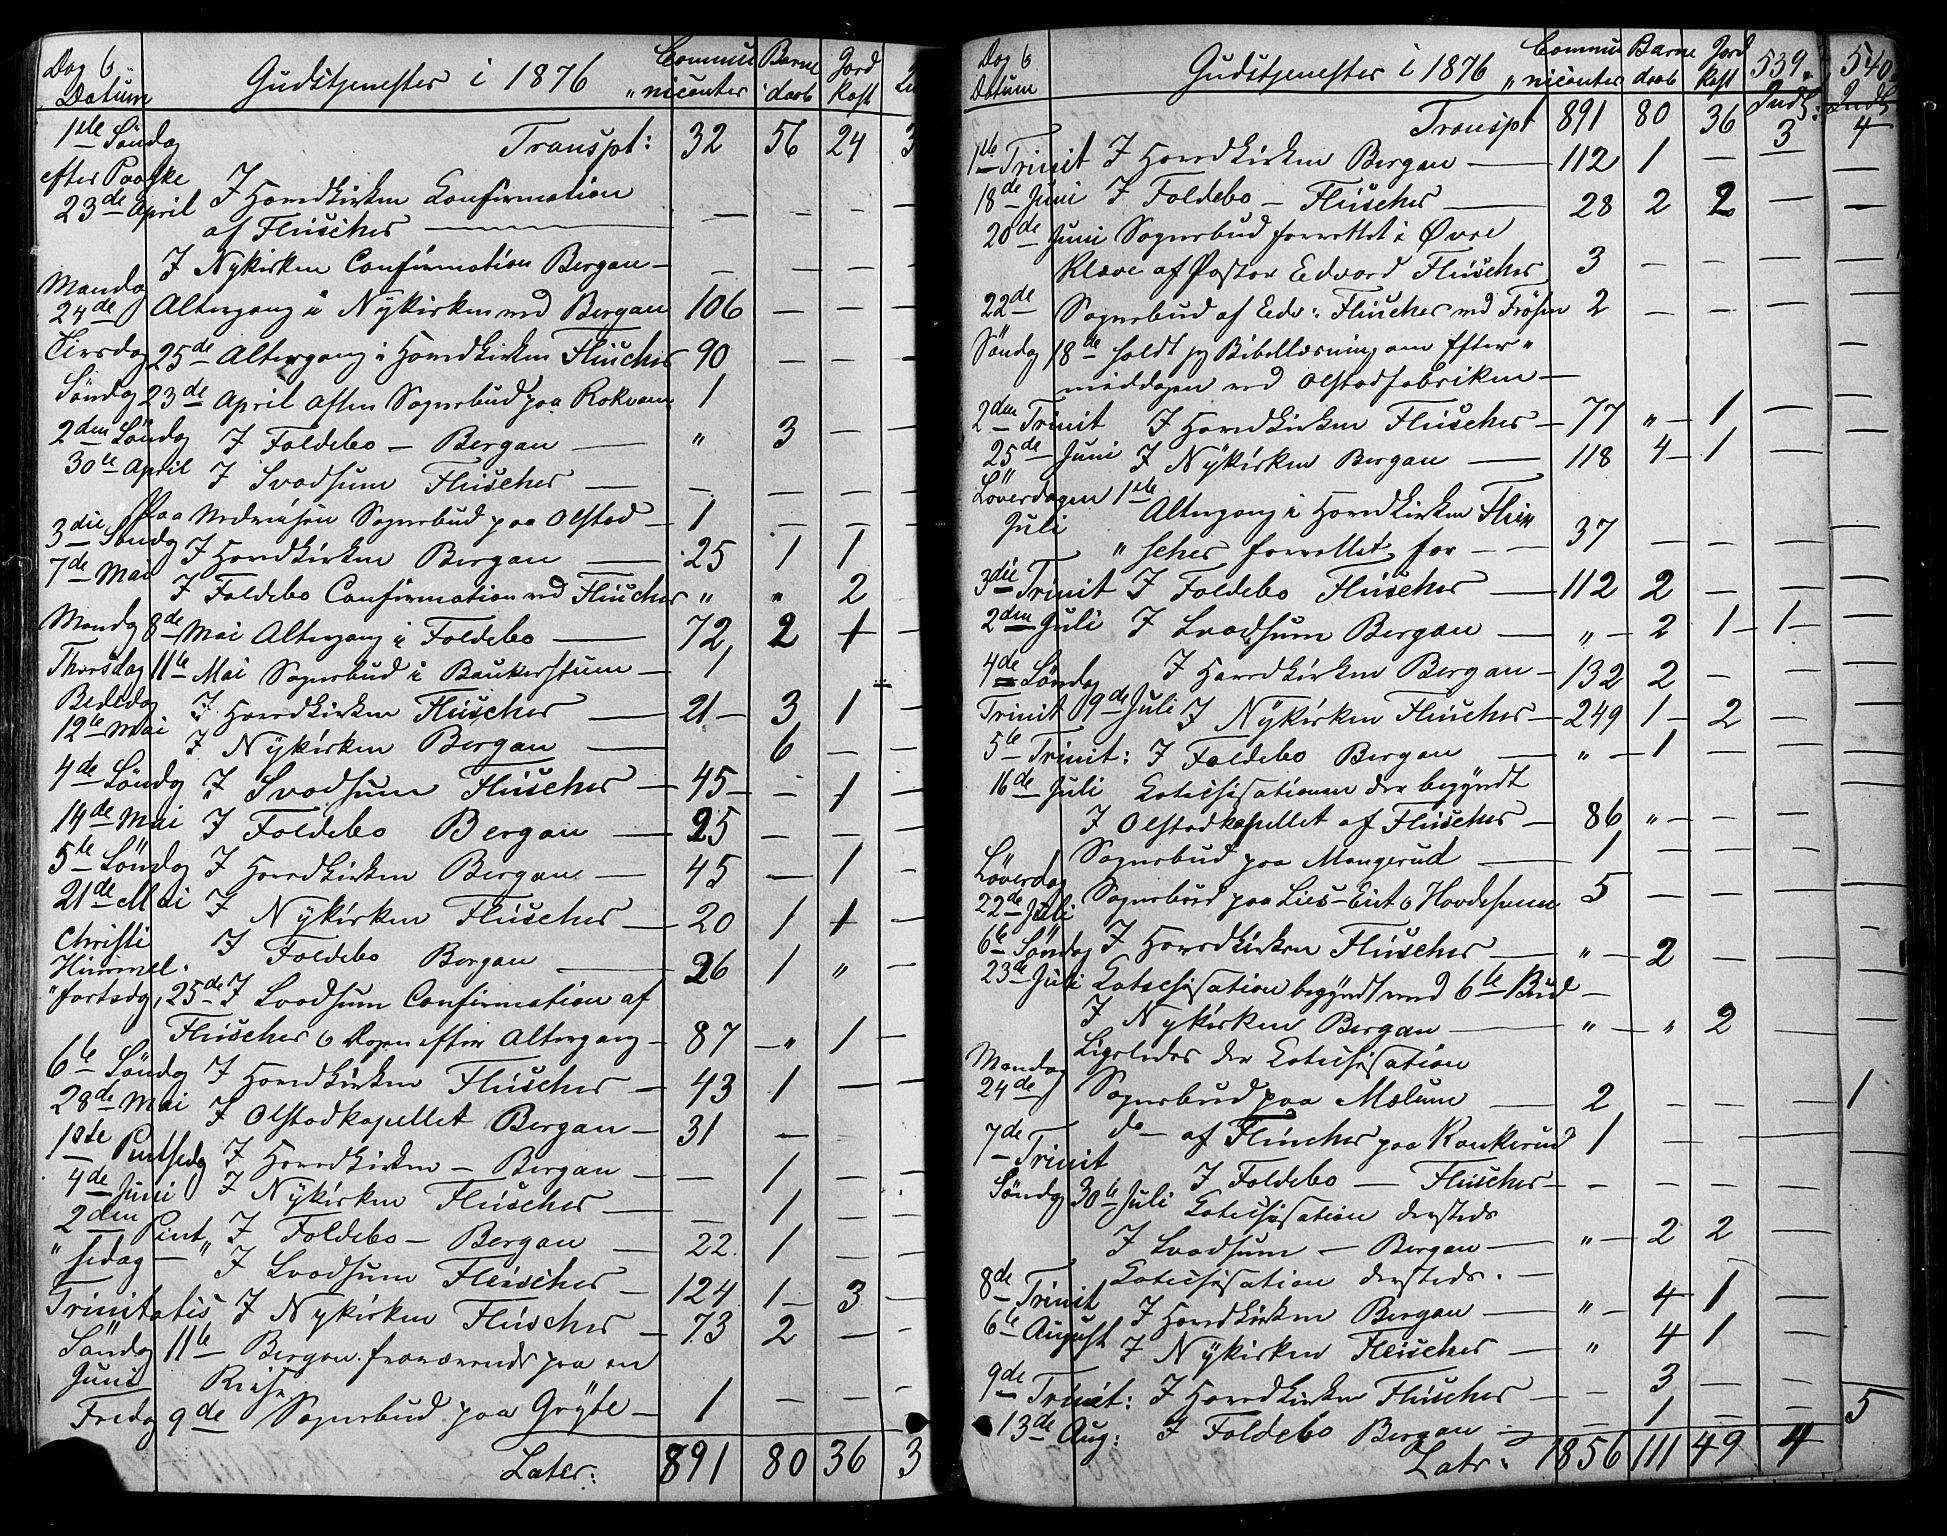 Dag &
Datum
Gudstjenester i 1876
Commu
„nicanter
Barne
daab
Jord
kast
1ste Söndag
Transpt: 32 56 24 3
efter Paaske
23de April I Hovedkirken Confirmation
af Fleischer — — — —
I Nykirken Confirmation Bergan — — — —
Mandag
24de Altergang i Nykirken ved Bergan 106 — — —
Tirsdag 25de Altergang i Hovedkirken Fleischer 90 — — —
Söndag 23de April Aften Sognebud paa Rokvam 1
2den Söndag I Faldebo — Bergan — „ 3 — —
30te April I Svadsum Fleischer — — — — —
Paa Nedreisen Sognebud paa Olstad — 1 — —
3die Söndag I Hovedkirken Bergan — 25 1 1
7de Mai I Faldebo Confirmation ved Fleischer „ „ 2
Mandag 8de Mai Altergang i Faldebo — 72 2 1 —
Thorsdag 11te Mai Sognebud i Baukerstuen — 1
Bededag I Hovedkirken Fleischer — 21 — 3 1 —
12te Mai I Nykirken Bergan — 6 — —
4de Söndag I Svadsum Fleischer — 45 — — 1 —
14de Mai I Faldebo Bergan — 25 — — —
5te Söndag I Hovedkirken Bergan — 45 — 1 —
21de Mai I Nykirken Fleischer — 20 1 1 —
Christi
Himmel- I Faldebo Bergan — 26 1 „ —
„fartsdg, 25de I Svadsum Confirmation af
Fleischer & Dagen efter Altergang — 87 — „ 1 —
6te Söndag I Hovedkirken Fleischer — 43 1 — —
28de Mai I Olstadkapellet Bergan — 31 —
1ste Pintsedg I Hovedkirken — Bergan — — 1 — —
4de Juni I Nykirken Fleischer — — 1 — —
2den Pint„ I Faldebo — Bergan — 22 1 —
„sedag — „ I Svadsum Fleischer — 124 1 — 3 —
Trinitatis I Nykirken Fleischer — 73 2 — —
Söndag 11te Bergan fraværende paa en
Juni Reise
Fredag 9de Sognebud paa Gryte — 1 — — —
Later: 891 80 36 3
Dag &
Datum
Gudstjenester i 1876
Commu
„nicanter
Barne
daab
Jord
kast
539.
Indl:
540.
Indl
Transpt 891 80 36 3 4
1ste Trinit I Hovedkirken Bergan — 112 1 — — —
18de Juni I Faldebo — Fleischer — 28 2 2 — —
20de Juni Sognebud forrettet i Øvre
Kleve af Pastor Edvard Fleischer 3 — — — —
22de Sognebud af Edv: Fleischer ved Frösen 2 — — — —
Söndag 18de holdt jeg Bibellæsning om Efter„
middagen ved Olstadfabriken —
2den Trinit I Hovedkirken Fleischer — 77 „ — 1 — —
25de Juni I Nykirken Bergan — 118 4 — 1 — —
Löverdagen 1ste Altergang i Hovedkirken Flei„
Juli „scher forrettet for — — 37 — — — —
3die Trinit I Faldebo Fleischer — 112 2 — — —
2den Juli I Svadsum Bergan — „ — 2 1 — 1 — —
4de Söndag I Hovedkirken Bergan — 132 2 — — —
Trinit 9de Juli I Nykirken Fleischer — 249 1 — 2 — —
5te Trinit: I Faldebo Bergan — „ — 1 — — —
16de Juli Catechisationen der begyndt
I Olstadkapellet af Fleischer — 86 „ — — — —
Löverdag Sognebud paa Mangerud — 1 — — — —
22de Juli Sognebud paa Lies-Eiet & Hovdesveen 5 — — — —
6te Söndag I Hovedkirken Fleischer — „ — 2 — — —
23de Juli Catechisation begyndt med 6te Bud —
I Nykirken Bergan — „ — „ 2 — —
Ligeledes der Catechisation
Mandag
24de Sognebud paa Mælum — 2 — — — 1
do — af Fleischer paa Kankerud 1 — — — —
7de Trinit
I Faldebo — Fleischer — — — — — —
Söndg 30te Juli Catechisation dersteds
I Svadsum — Bergan — „ — 2 2 — —
Catechisation dersteds. —
8de Trinit I Hovedkirken Bergan — „ — 4 1 — —
6te August I Nykirken Fleischer — „ 4 1 — —
9de Trinit: I Hovedkirken Fleischer — — 3 — — —
13de Aug: I Faldebo Bergan — — 1 — — 5
Latr: 1856 111 49 4